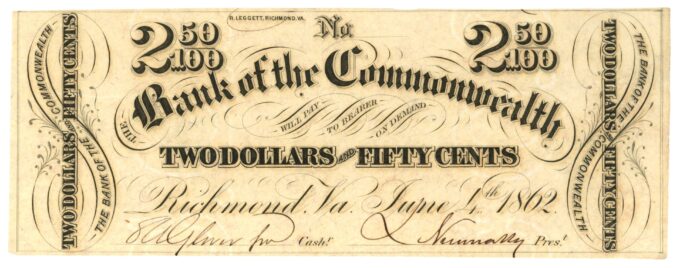 R. LEGGETT, RICHMOND, VA.
No.
2 50/100
2 50/100
THE Bank of the Commonwealth
WILL PAY
TO BEARER
ON DEMAND
TWO DOLLARS AND FIFTY CENTS
Richmond, Va. June 4th 1862
Cashr.
Prest.
TWO DOLLARS & FIFTY CENTS
THE BANK OF THE COMMONWEALTH
TWO DOLLARS & FIFTY CENTS
THE BANK OF THE COMMONWEALTH